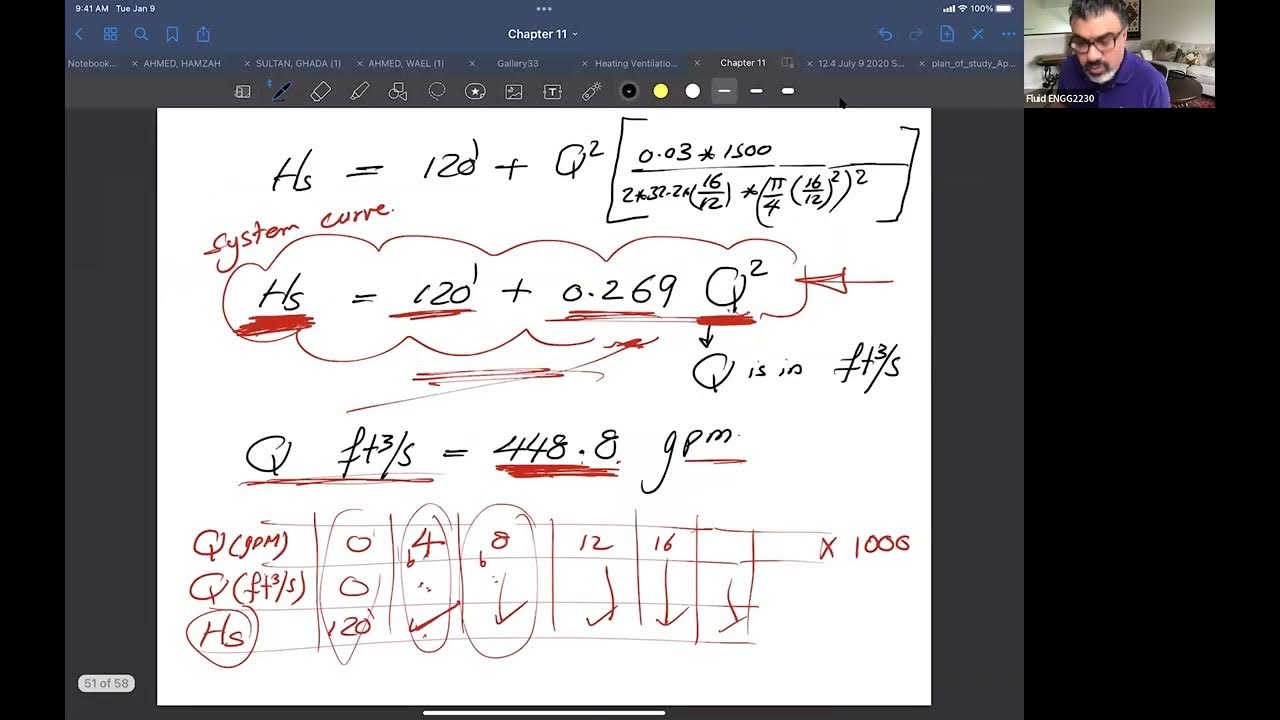 9:41 AM Tue Jan 9
100%
Chapter 11
Notebook...
AHMED, HAMZAH
SULTAN, GHADA (1)
AHMED, WAEL (1)
Gallery33
Heating Ventilatio...
Chapter 11
12.4 July 9 2020 S...
plan_of_study_Ap...
Fluid ENGG2230
Hs = 120' + Q² [ 0.03 * 1500 / 2*32.2*(16/12) * (π/4 (16/12)²)² ]
system curve.
Hs = 120' + 0.269 Q²
Q is in ft³/s
Q ft³/s = 448.8 gpm.
Q(GPM) 0 4 8 12 16 x 1000
Q(ft³/s) 0
Hs 120'
51 of 58